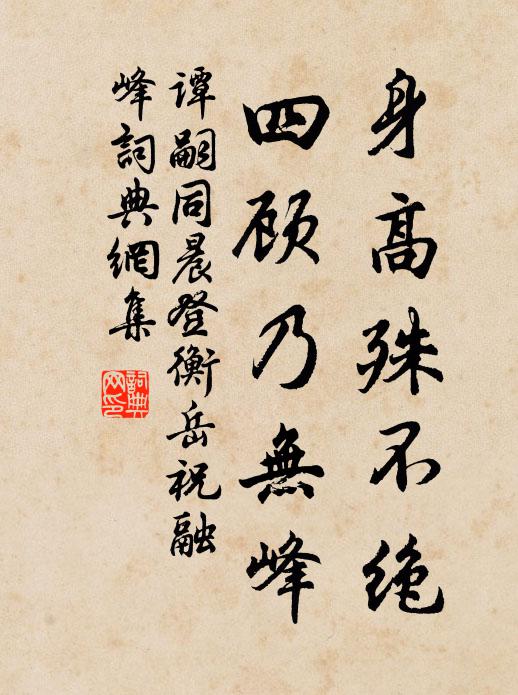 身高殊不绝
四顾乃無峰
谭嗣同晨登衡岳祝融
峰詞典網集
詞典
网印